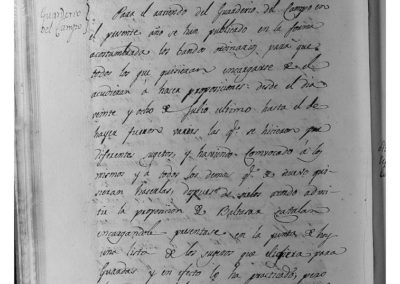 Guarderio
del Campo
Para el arriendo del Guarderio del Campo en
el presente año se han publicado en la forma
acostumbrada los bandos para que
todos los que quisieran encargarse de el
acudieran á hacer proposiciones desde el dia
veinte y ocho de Julio ultimo hasta el de
haver fueron varias las qe. se hicieron por
diferentes sugetos, y haviendo convocado á los
mismos y á todos los demas qe. de nuevo qui-
sieran hacerlas, despues de
la proposicion de Baltasar Catalan
encargandole presentase en la de hoy
una lista de los sugetos que eligiera para
Guardas y en efecto lo ha practicado, pero